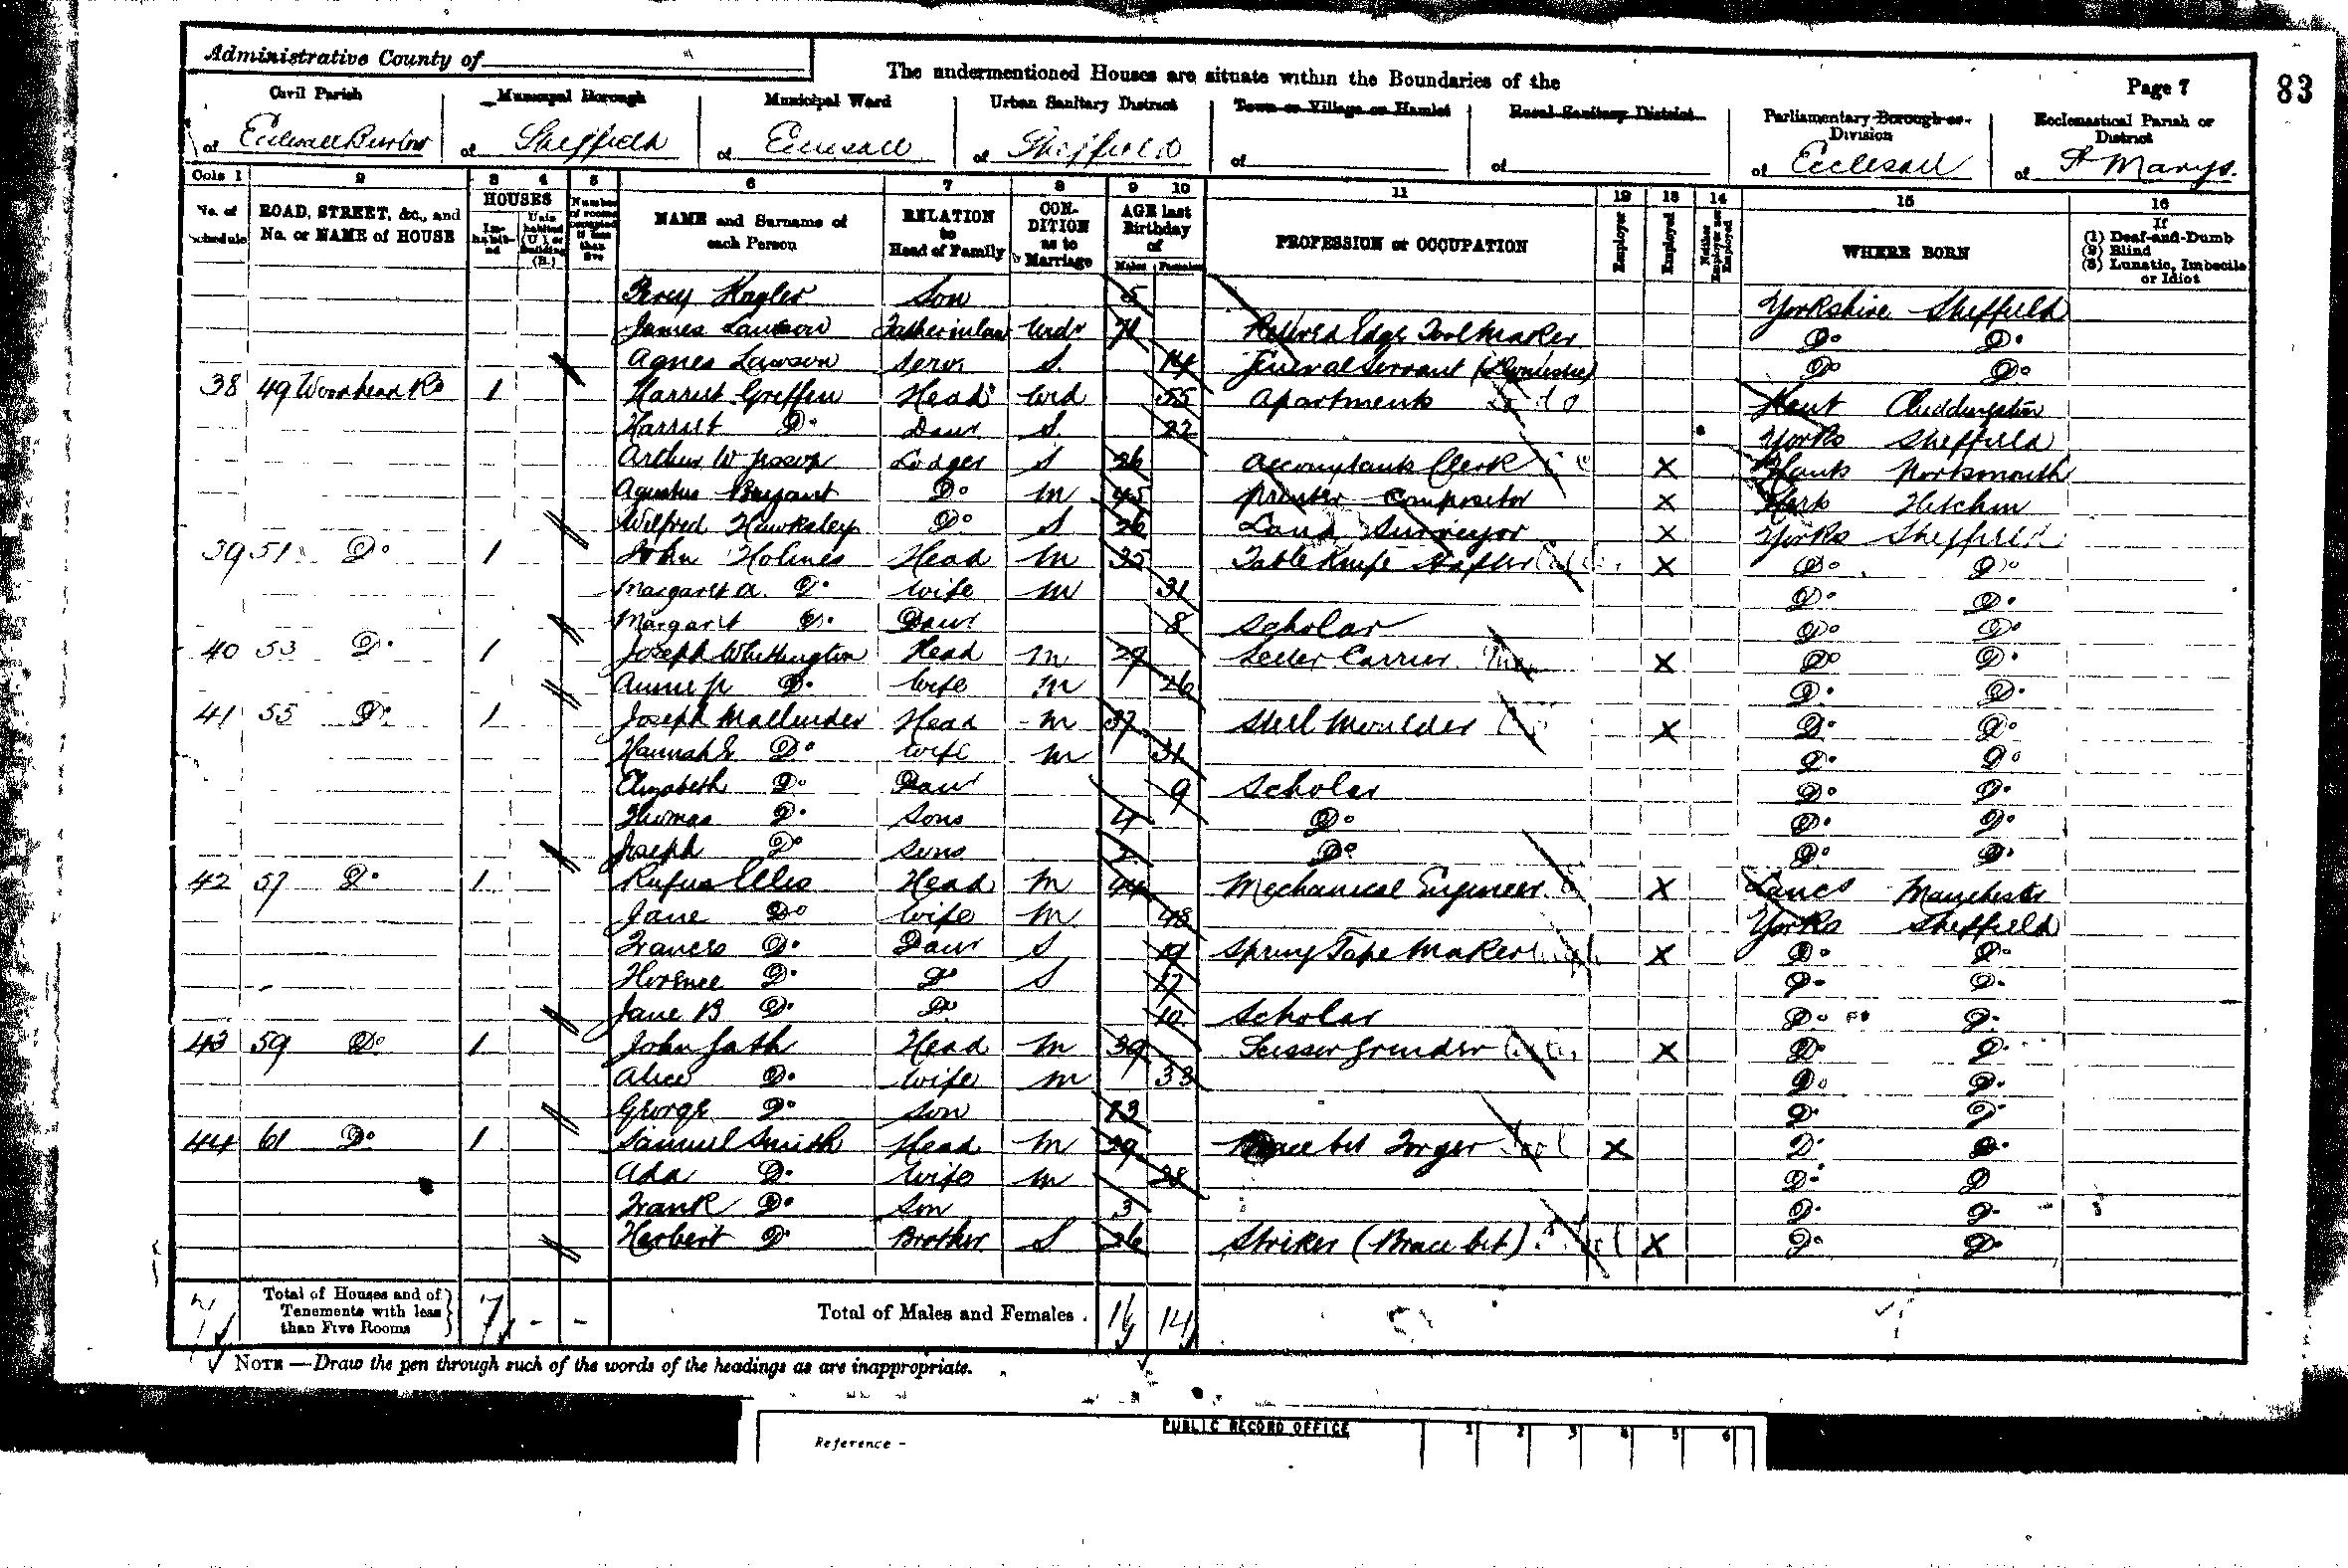 Administrative County of
The undermentioned Houses are situate within the Boundaries of the
Page 7
83
Civil Parish of Ecclesall Bierlow
Municipal Borough of Sheffield
Municipal Ward of Ecclesall
Urban Sanitary District of Sheffield
Town or Village or Hamlet of
Rural Sanitary District of
Parliamentary Borough or Division of Ecclesall
Ecclesiastical Parish or District of St Marys.
Cols 1 2 3 4 5 6 7 8 9 10 11 12 13 14 15 16
No. of Schedule
ROAD, STREET, &c., and No. or NAME of HOUSE
HOUSES
Inhabited
Uninhabited (U.), or Building (B.)
Number of rooms occupied if less than five
NAME and Surname of each Person
RELATION to Head of Family
CONDITION as to Marriage
AGE last Birthday of
Males Females
PROFESSION or OCCUPATION
Employer
Employed
Neither Employer nor Employed
WHERE BORN
If (1) Deaf-and-Dumb (2) Blind (3) Lunatic, Imbecile or Idiot
Percy Hayler Son 5 Yorkshire Sheffield
James Lawson Father in law Widr 71 Retired Edge Tool Maker Do Do
Agnes Lawson Serv. S. 14 General Servant (Domestic) Do Do
38 49 Woodhead Rd 1 Harriet Griffen Head Wid 55 Apartments Kent Chiddingstone
Harriet Do Daur S. 22 Yorks Sheffield
Arthur W Jessop Lodger S 26 Accountants Clerk X Hants Portsmouth
Agustus Bryant Do M 45 Printer Compositor X Herts Hitchin
Wilfred Hawksley Do S 26 Land Surveyor X Yorks Sheffield
39 51 Do 1 John Holmes Head M 35 Table Knife Hafter X Do Do
Margaret A. Do Wife M 31 Do Do
Margaret Do Daur 8 Scholar Do Do
40 53 Do 1 Joseph Whittington Head M 29 Letter Carrier X Do Do
Annie Do Wife M 26 Do Do
41 55 Do 1 Joseph Mallinder Head M 37 Steel Moulder X Do Do
Hannah E Do Wife M 31 Do Do
Elizabeth Do Daur 9 Scholar Do Do
Thomas Do Sons 4 Do Do Do
Joseph Do Sons 2 Do Do Do
42 57 Do 1 Rufus Ellis Head M 44 Mechanical Engineer X Lancs Manchester
Jane Do Wife M 48 Yorks Sheffield
Frances Do Daur S 19 Spring Tape Maker X Do Do
Florence Do Do S 17 Do Do
Jane B Do Do 10 Scholar Do Do
43 59 Do 1 John Jash Head M 39 Scissor Grinder X Do Do
Alice Do Wife M 33 Do Do
George Do Son 13 Do Do
44 61 Do 1 Samuel Smith Head M 29 Brace bit Forger X Do Do
Ada Do Wife M 28 Do D
Frank Do Son 3 Do Do
Herbert Do Brother S 26 Striker (Brace bit) X Do Do
7 Total of Houses and of Tenements with less than Five Rooms 7 - - Total of Males and Females . 16 14
NOTE —Draw the pen through such of the words of the headings as are inappropriate.
PUBLIC RECORD OFFICE
Reference -
1 2 3 4 5 6